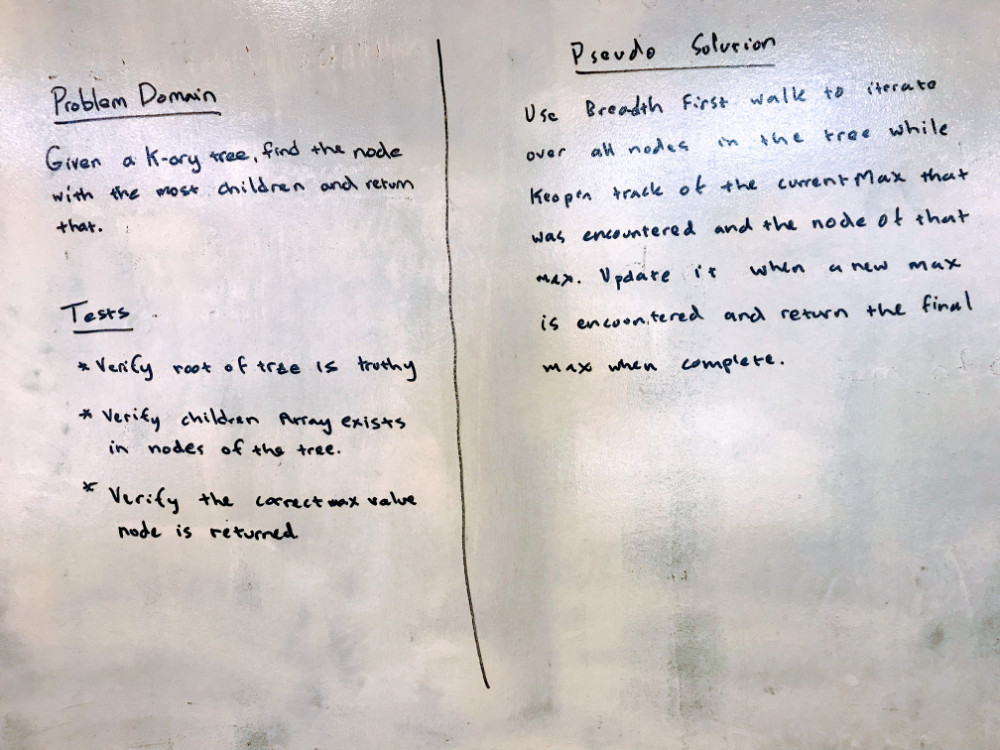 Problem Domain
Given a K-ary tree, find the node
with the most children and return
that.
Tests
* Verify root of tree is truthy
* Verify children Array exists
in nodes of the tree.
* Verify the correct max value
node is returned
Pseudo Solution
Use Breadth First walk to iterate
over all nodes in the tree while
Keepen track of the current Max that
was encountered and the node of that
max. Update it when a new max
is encountered and return the final
max when complete.